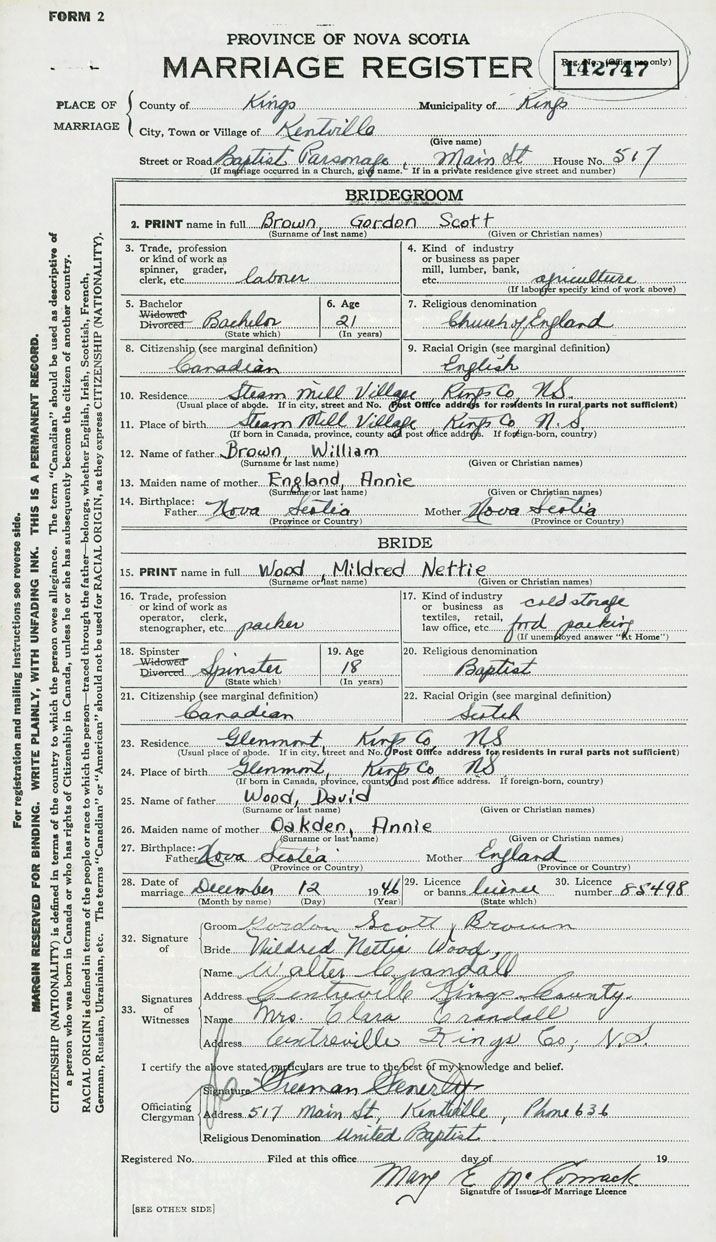 FORM 2
PROVINCE OF NOVA SCOTIA
MARRIAGE REGISTER
Reg. No. (Office use only)
142747
PLACE OF MARRIAGE
County of Kings Municipality of Kings
City, Town or Village of Kentville
(Give name)
Street or Road Baptist Parsonage, Main St House No. 517
(If marriage occurred in a Church, give name. If in a private residence give street and number)
BRIDEGROOM
2. PRINT name in full Brown, Gordon Scott
(Surname or last name) (Given or Christian names)
3. Trade, profession or kind of work as spinner, grader, clerk, etc. labourer
4. Kind of industry or business as paper mill, lumber, bank, etc. agriculture
(If laborer specify kind of work above)
5. Bachelor Widowed Divorced Bachelor
(State which)
6. Age 21
(In years)
7. Religious denomination
Church of England
8. Citizenship (see marginal definition)
Canadian
9. Racial Origin (see marginal definition)
English
10. Residence Steam Mill Village, Kings Co, N.S.
(Usual place of abode. If in city, street and No. Post Office address for residents in rural parts not sufficient)
11. Place of birth Steam Mill Village, Kings Co N.S.
(If born in Canada, province, county and post office address. If foreign-born, country)
12. Name of father Brown, William
(Surname or last name) (Given or Christian names)
13. Maiden name of mother England, Annie
(Surname or last name) (Given or Christian names)
14. Birthplace: Father Nova Scotia Mother Nova Scotia
(Province or Country) (Province or Country)
BRIDE
15. PRINT name in full Wood, Mildred Nettie
(Surname or last name) (Given or Christian names)
16. Trade, profession or kind of work as operator, clerk, stenographer, etc. packer
17. Kind of industry or business as textiles, retail, law office, etc. cold storage food packing
(If unemployed answer "At Home")
18. Spinster Widowed Divorced Spinster
(State which)
19. Age 18
(In years)
20. Religious denomination
Baptist
21. Citizenship (see marginal definition)
Canadian
22. Racial Origin (see marginal definition)
Scotch
23. Residence Glenmont, Kings Co, NS
(Usual place of abode. If in city, street and No. Post Office address for residents in rural parts not sufficient)
24. Place of birth Glenmont, Kings Co NS
(If born in Canada, province, county and post office address. If foreign-born, country)
25. Name of father Wood, David
(Surname or last name) (Given or Christian names)
26. Maiden name of mother Oakden, Annie
(Surname or last name) (Given or Christian names)
27. Birthplace: Father Nova Scotia Mother England
(Province or Country) (Province or Country)
28. Date of marriage December 12 1946
(Month by name) (Day) (Year)
29. Licence or banns licence
(State which)
30. Licence number 85498
32. Signature of
Groom Gordon Scott Brown
Bride Mildred Nettie Wood,
33. Signatures of Witnesses
Name Walter Crandall
Address Centreville Kings County.
Name Mrs. Clara Crandall
Address Centreville Kings Co; N.S.
I certify the above stated particulars are true to the best of my knowledge and belief.
Officiating Clergyman
Signature Freeman Fenerty
Address 517 Main St, Kentville, Phone 636
Religious Denomination United Baptist
Registered No. Filed at this office day of 19
Mary E McCormack
Signature of Issuer of Marriage Licence
[SEE OTHER SIDE]
For registration and mailing instructions see reverse side.
MARGIN RESERVED FOR BINDING. WRITE PLAINLY, WITH UNFADING INK. THIS IS A PERMANENT RECORD.
CITIZENSHIP (NATIONALITY) is defined in terms of the country to which the person owes allegiance. The term "Canadian" should be used as descriptive of
a person who was born in Canada or who has rights of Citizenship in Canada, unless he or she has subsequently become the citizen of another country.
RACIAL ORIGIN is defined in terms of the people or race to which the person—traced through the father—belongs, whether English, Irish, Scottish, French,
German, Russian, Ukrainian, etc. The terms "Canadian" or "American" should not be used for RACIAL ORIGIN, as they express CITIZENSHIP (NATIONALITY).